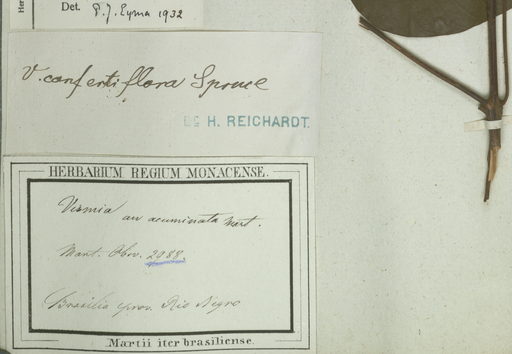 Her
Det. P. J. Eyma 1932
V. confertiflora Spruce
H. REICHARDT.
HERBARIUM REGIUM MONACENSE.
Vismia
an acuminata Mart.
Mart. Obs. 2088.
Brasilia prov. Rio Negro
Martii iter brasiliense.